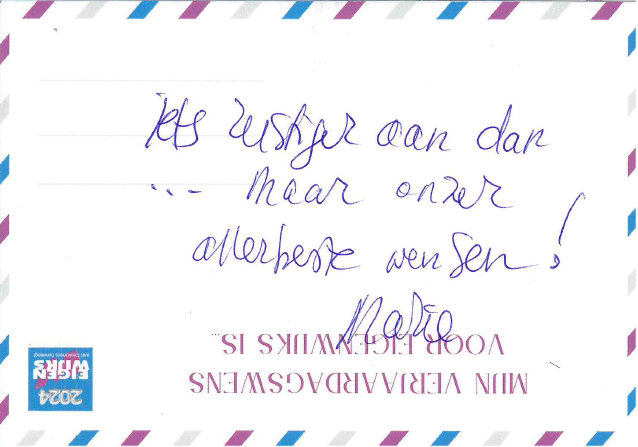 iets rustiger aan dan
... maar onzer
allerbeste wensen!
Marie
MIJN VERJAARDAGSWENS
VOOR EIGENWIJKS IS...
2024
EIGEN
WIJKS